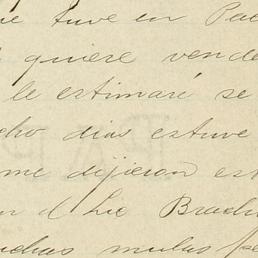 tuve en
quiere vende
le estimaré se
cho dias estuve
me dijieron est
n d Lic Brach
uchas mulas pe